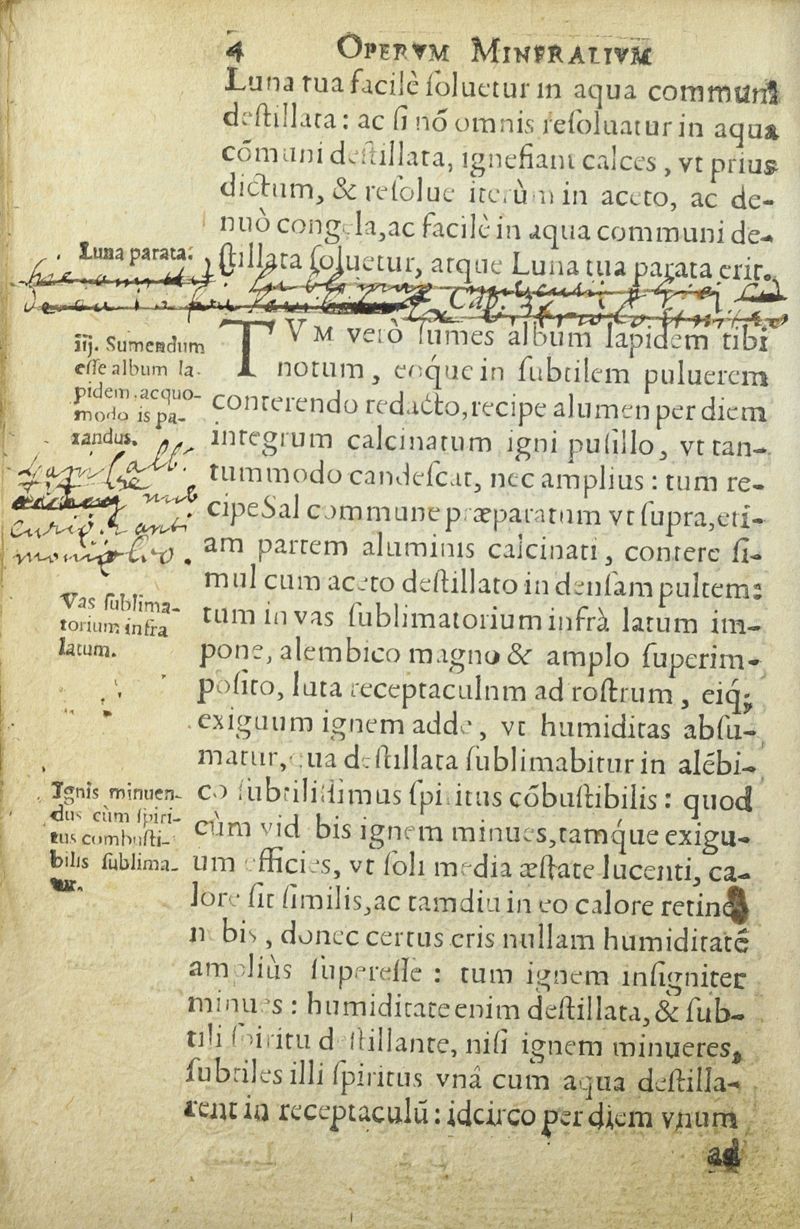 4 OPERVM MINERALIVM
Luna tua facilè ſoluetur in aqua communi
deſtillata: ac ſi nõ omnis reſoluatur in aqua
cõmuni deſtillata, ignefiant calces, vt prius
dictum, & reſolue iterùm in aceto, ac de-
nuò congela, ac facilè in aqua communi de-
Luna parata.
ſtillata ſoluetur, atque Luna tua parata erit.
Cap.
iij. Sumendum
eſſe album la-
pidem, ac quo-
modo is pa-
randus.
TVM verò ſumes album lapidem tibi
notum, eoque in ſubtilem puluerem
conterendo redacto, recipe alumen per diem
integrum calcinatum igni puſillo, vt tan-
tummodo candeſcat, nec amplius: tum re-
cipe Sal commune præparatum vt ſupra, eti-
am partem aluminis calcinati, contere ſi-
mul cum aceto deſtillato in denſam pultem:
Vas ſublima-
torium infra
latum.
tum in vas ſublimatorium infrà latum im-
pone, alembico magno & amplo ſuperim-
poſito, luta receptaculnm ad roſtrum, eiq;
exiguum ignem adde, vt humiditas abſu-
matur, qua deſtillata ſublimabitur in alẽbi-
Ignis minuen-
dus cùm ſpiri-
tus combuſti-
bilis ſublima-
tur.
co ſubtiliſſimus ſpiritus cõbuſtibilis: quod
cùm vid bis ignem minues, tamque exigu-
um efficies, vt ſoli media æſtate lucenti, ca-
lore ſit ſimilis, ac tamdiu in eo calore retine
n bis, donec certus eris nullam humiditatẽ
ampliùs ſupereſſe: tum ignem inſigniter
minues: humiditate enim deſtillata, & ſub-
tili ſpiritu deſtillante, niſi ignem minueres,
ſubtiles illi ſpiritus vnâ cum aqua deſtilla-
rent in receptaculũ: idcirco per diem vnum
ad